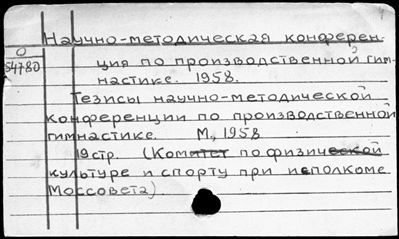 Научно-методическая конферен-
О
54780
ция по производственной гим-
настике. 1958.
Тезисы научно-методической
конференции по производственной
гимнастике. М., 1958
19 стр. (Комитет по физической
культуре и спорту при исполкоме
Моссовета)